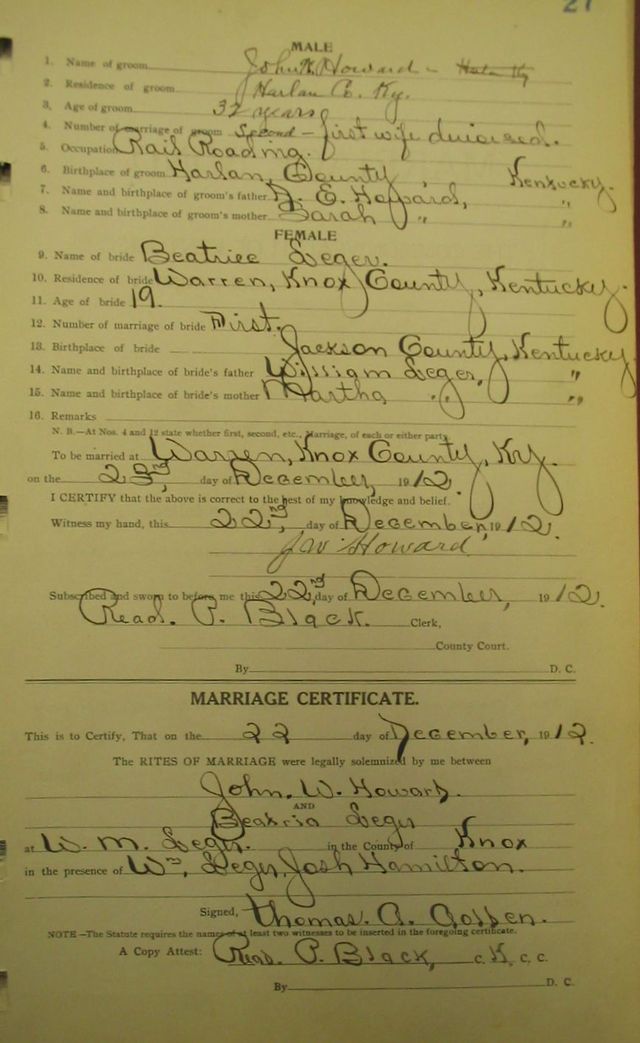 27
MALE
1. Name of groom John W. Howard - Harlan Ky
2. Residence of groom Harlan Co. Ky.
3. Age of groom 32 years
4. Number of marriage of groom Second - first wife divorced.
5. Occupation Rail Roading.
6. Birthplace of groom Harlan, County, Kentucky.
7. Name and birthplace of groom's father E. Howard, "
8. Name and birthplace of groom's mother Sarah " "
FEMALE
9. Name of bride Beatrice Leger.
10. Residence of bride Warren, Knox County, Kentucky.
11. Age of bride 19.
12. Number of marriage of bride First.
13. Birthplace of bride Jackson County, Kentucky
14. Name and birthplace of bride's father William Leger, "
15. Name and birthplace of bride's mother Martha " "
16. Remarks
N. B.—At Nos. 4 and 12 state whether first, second, etc., Marriage, of each or either party.
To be married at Warren, Knox County, Ky.
on the 23rd, day of December, 1912.
I CERTIFY that the above is correct to the best of my knowledge and belief.
Witness my hand, this 22nd, day of December, 1912.
J W Howard
Subscribed and sworn to before me this 22nd, day of December, 1912.
Read. P. Black. Clerk,
County Court.
By D. C.
MARRIAGE CERTIFICATE.
This is to Certify, That on the 22 day of December, 1912.
The RITES OF MARRIAGE were legally solemnized by me between
John. W. Howard.
AND
Beatria Leger
at W. M. Leger. in the County of Knox
in the presence of Wm, Leger, Josh Hamilton.
Signed, Thomas. A.
NOTE—The Statute requires the names of at least two witnesses to be inserted in the foregoing certificate.
A Copy Attest: Read. P. Black, C. K. C. C.
By D. C.